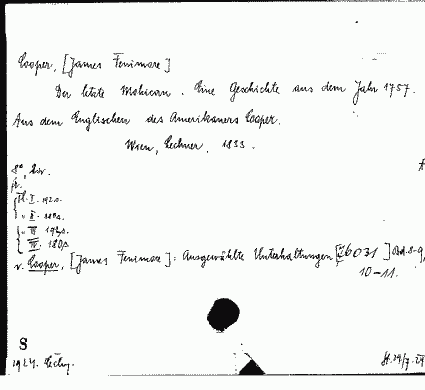 Cooper, [James Fenimore]
Der letzte Mohican. Eine Geschichte aus dem Jahr 1757.
Aus dem Englischen des Amerikaners Cooper.
Wien, Lechner, 1833.
8°,
fr.
Tl. I. 192 s.
" II. 180 s.
" III 192 s.
IV. 180 s
v. Cooper, [James Fenimore]: Ausgewählte Unterhaltungen [26031] Bd. 8-9,
10-11.
8
1924.